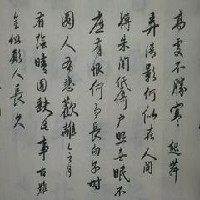 高處不勝寒 起舞
弄清影何似在人間
轉朱閣低綺戶照無眠不
應有恨何事長向別時
圓人有悲歡離合月
有陰晴圓缺此事古難
全但願人長久